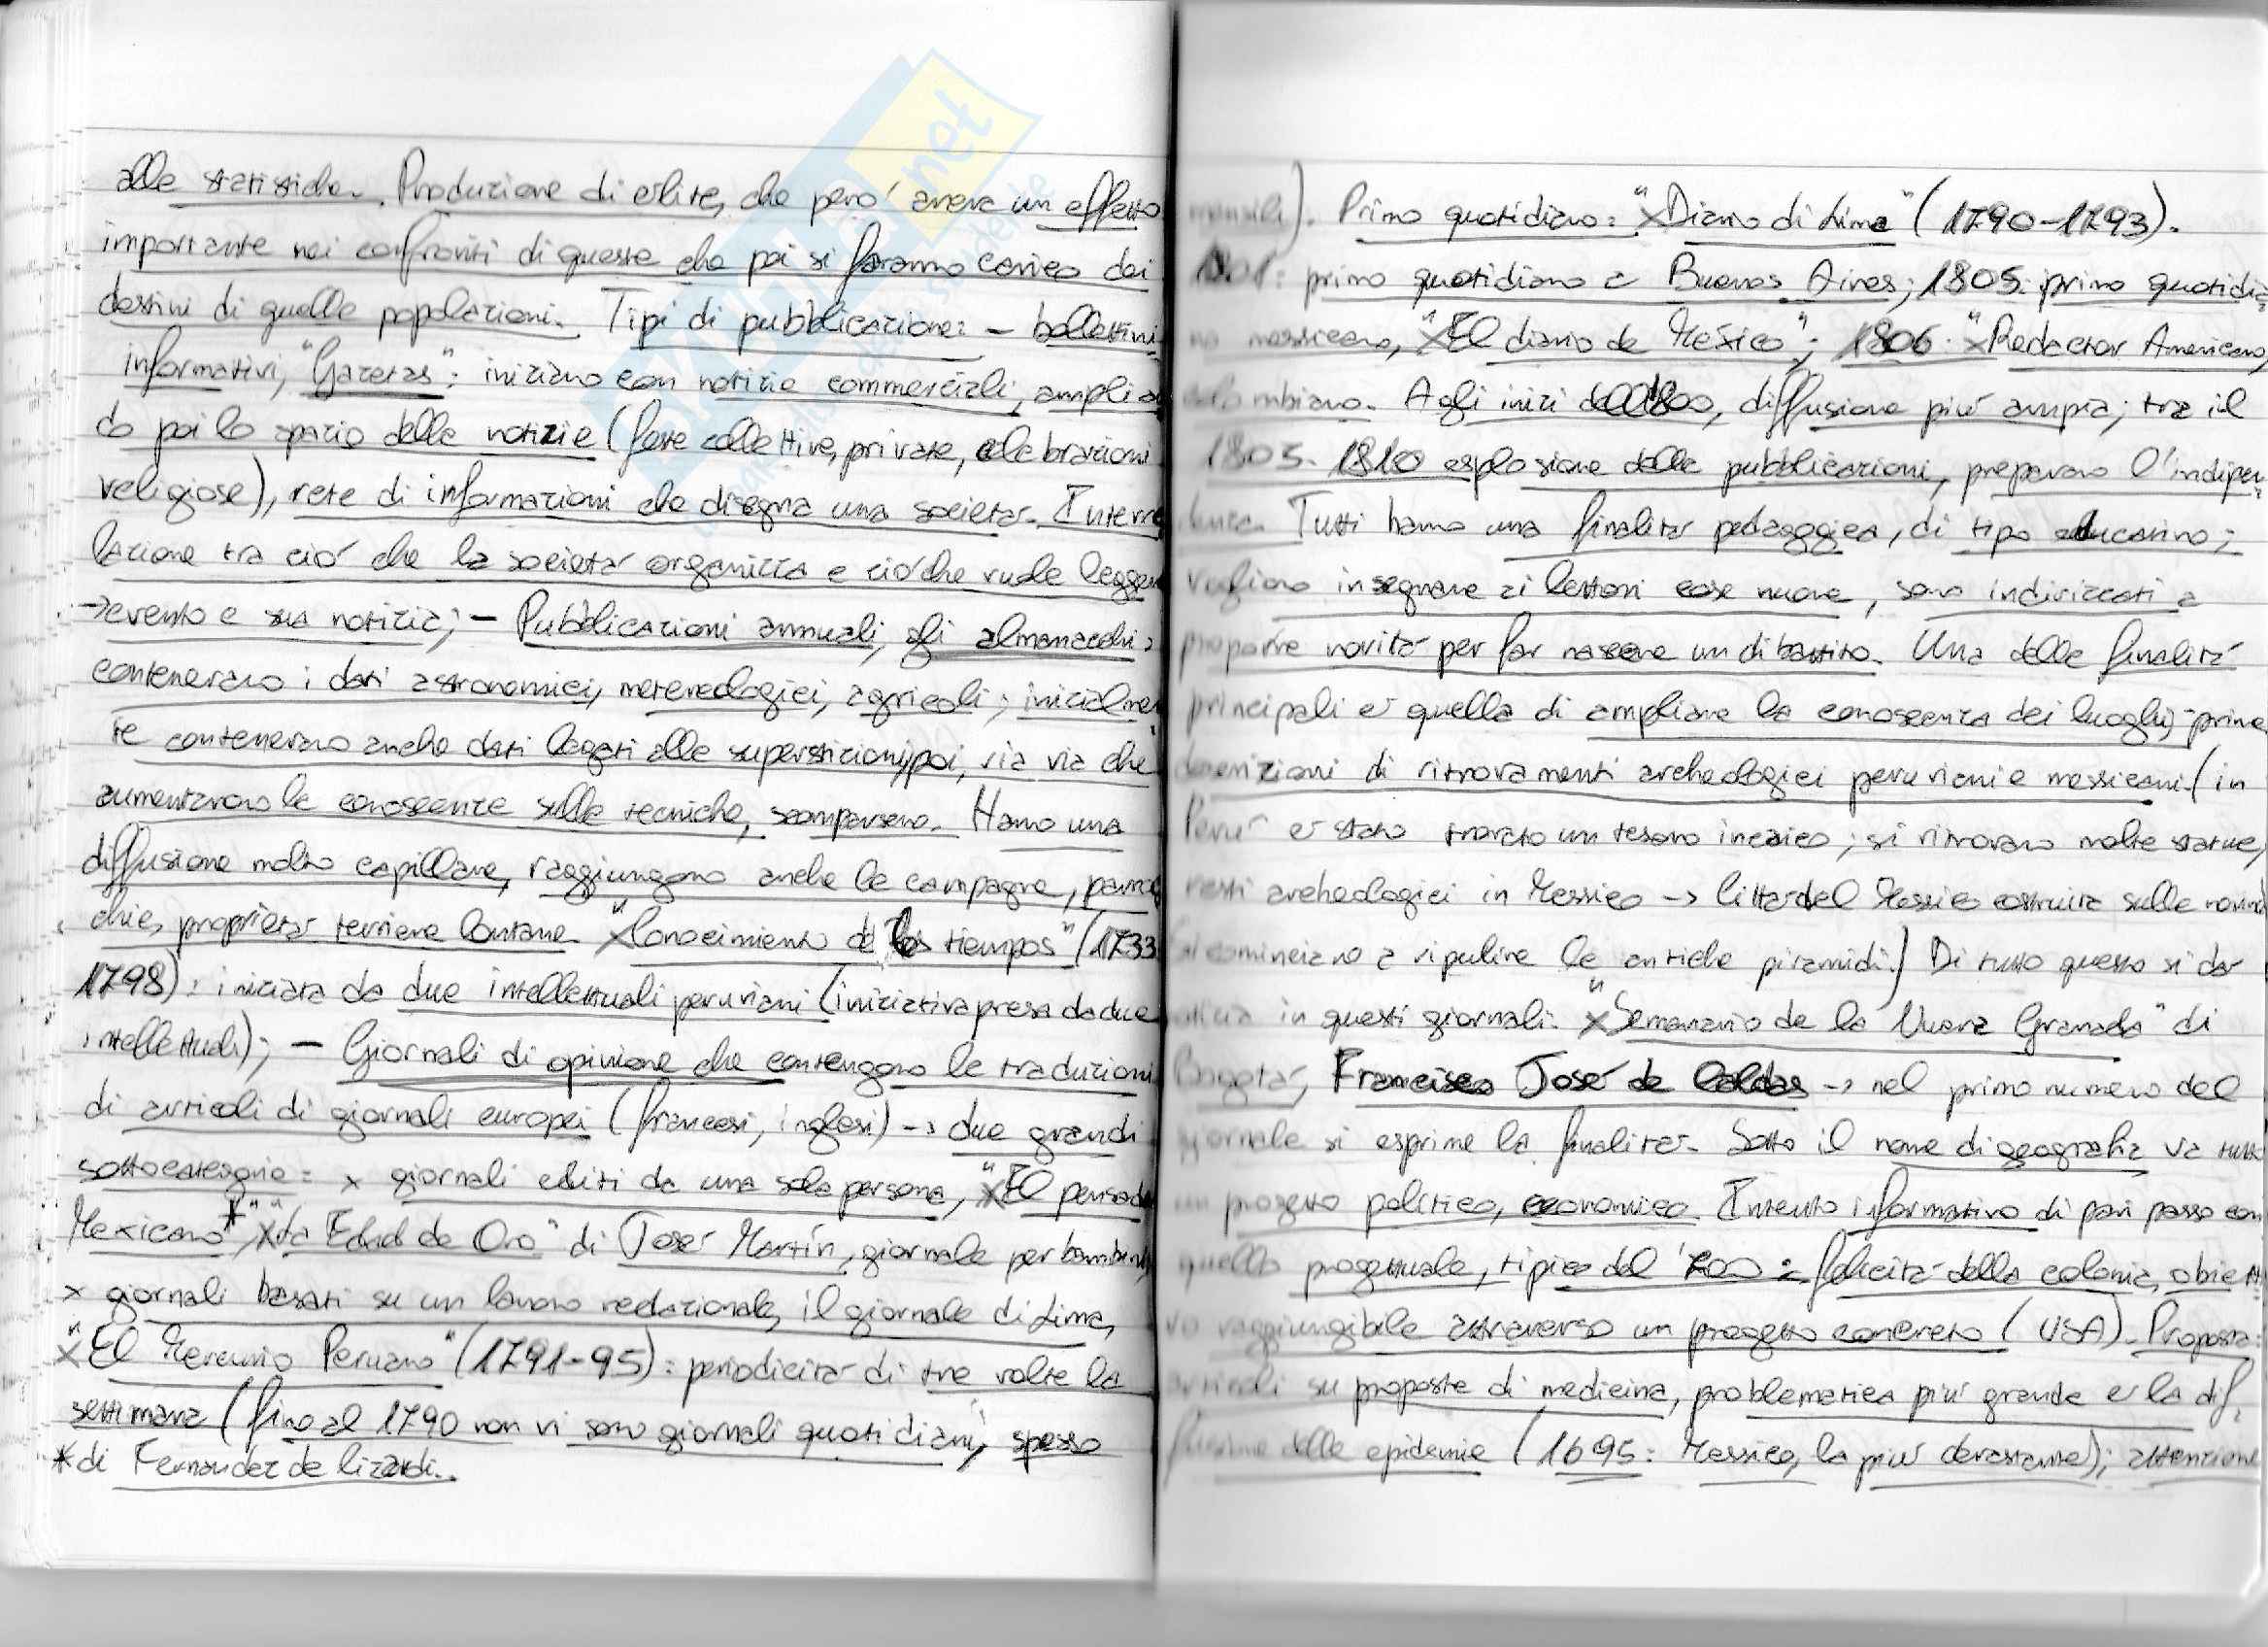 alle statistiche. Produzione di elite, che pero' aveva un effetto
importante nei confronti di queste che poi si faranno carico dei
destini di quelle popolazioni. Tipi di pubblicazione: - bollettini
informativi, "Gazetas": iniziano con notizie commerciali, amplian
do poi lo spazio delle notizie (feste collettive, private, celebrazioni
religiose), rete di informazioni che disegna una societa'. Interre
lazione tra cio' che la societa' organizza e cio' che vuole leggere
→ evento e sua notizia; - Pubblicazioni annuali, gli almanacchi:
contenevano i dati astronomici, metereologici, agricoli; inizialmen
te contenevano anche dati legati alle superstizioni, poi, via via che
aumentavano le conoscenze sulle tecniche, scomparsero. Hanno una
diffusione molto capillare, raggiungono anche le campagne, parroc
chie, proprieta' terriere lontane. x "Conocimiento de los tiempos" (1733
1798): iniziata da due intellettuali peruviani (iniziativa presa da due
intellettuali); - Giornali di opinione che contengono le traduzioni
di articoli di giornali europei (francesi, inglesi) → due grandi
sottocategorie: x giornali editi da una sola persona, x "El pensador
Mexicano"*, x "La Edad de Oro" di José Martín, giornale per bambini,
x giornali basati su un lavoro redazionale, il giornale di Lima,
x "El Mercurio Peruano" (1791-95): periodicita' di tre volte la
settimana (fino al 1790 non vi sono giornali quotidiani, spesso
* di Fernandez de Lizardi.
mensili). Primo quotidiano: x "Diario di Lima" (1790-1793).
1801: primo quotidiano a Buenos Aires; 1805: primo quotidia
no messicano, x "El diario de México"; 1806: x "Redactor Americano,
colombiano. Agli inizi dell'800, diffusione piu' ampia; tra il
1805-1810 esplosione delle pubblicazioni, preparano l'indipen
denza. Tutti hanno una finalita' pedagogica, di tipo educativo;
vogliono insegnare ai lettori cose nuove, sono indirizzati a
proporre novita' per far nascere un dibattito. Una delle finalita'
principali e' quella di ampliare la conoscenza dei luoghi, prime
descrizioni di ritrovamenti archeologici peruviani e messicani. (in
Peru' e' stato trovato un tesoro incaico; si ritrovano molte statue,
resti archeologici in Messico → Citta' del Messico costruita sulle rovine
si cominciano a ripulire le antiche piramidi.) Di tutto questo si da'
notizia in questi giornali. x "Semanario de la Nueva Granada" di
Bogota', Francisco José de Caldas → nel primo numero del
giornale si esprime la finalita'. Sotto il nome di geografia va tutto
un progetto politico, economico. Intento informativo di pari passo con
quello progettuale, tipico del '700: felicita' della colonia, obiett
vo raggiungibile attraverso un progetto concreto (USA). Proposta:
articoli su proposte di medicina, problematica piu' grande e' la dif
fusione delle epidemie (1695: Messico, la piu' devastante); attenzione